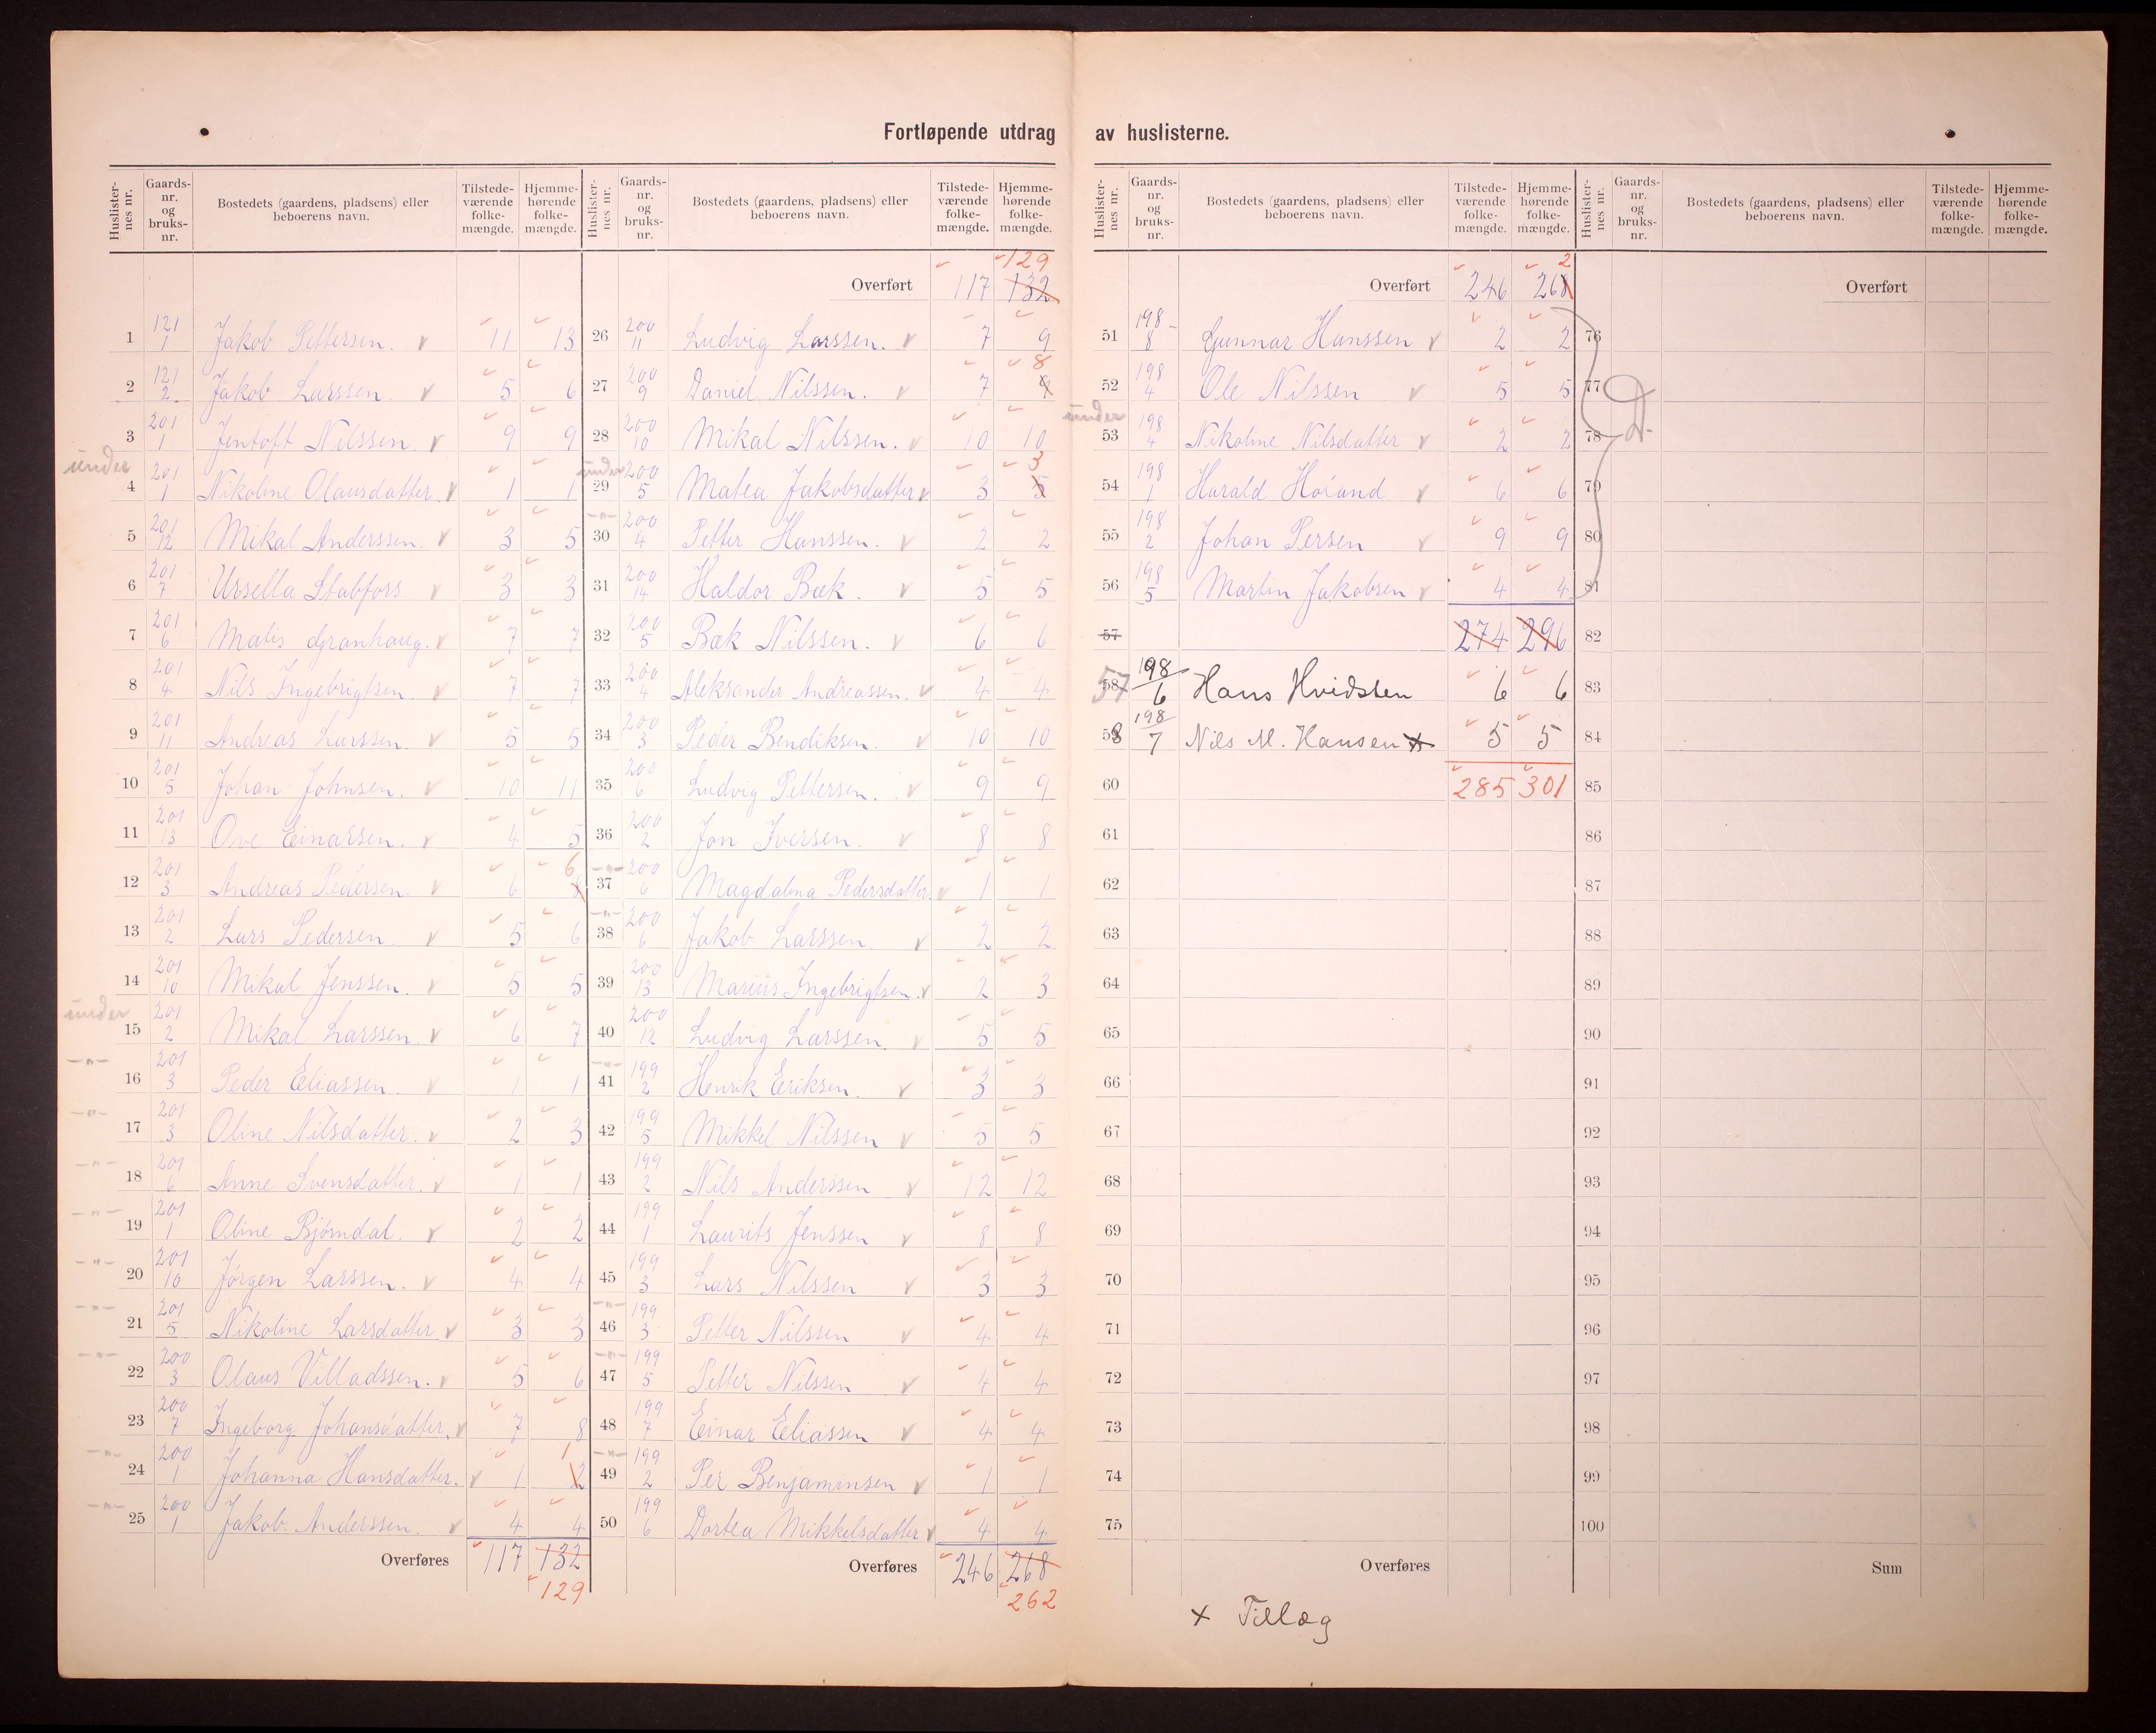 Fortløpende utdrag av huslisterne.
Huslisternes nr. | Gaards-nr. og bruks-nr. | Bostedets (gaardens, pladsens) eller beboerens navn. | Tilstedeværende folkemængde. | Hjemmehørende folkemængde.
1 121/1 Jakob Pettersen. 11 13
2 121/2 Jakob Larssen. 5 6
3 201/1 Jentoft Nilssen. 9 9
under 4 201/1 Nikoline Olausdatter. 1 1
5 201/12 Mikal Anderssen. 3 5
6 201/7 Ursella Stabfors. 3 3
7 201/6 Matis Granhaug. 7 7
8 201/4 Nils Ingebrigtsen. 7 7
9 201/11 Andreas Larssen. 5 5
10 201/5 Johan Johnsen. 10 11
11 201/13 Ove Einarsen. 4 5
12 201/3 Andreas Pedersen. 6 8 6
13 201/2 Lars Pedersen. 5 6
14 201/10 Mikal Jenssen. 5 5
under 15 201/2 Mikal Larssen. 6 7
—"— 16 201/3 Peder Eliassen. 1 1
—"— 17 201/3 Oline Nilsdatter. 2 3
—"— 18 201/6 Anne Svensdatter. 1 1
—"— 19 201/1 Oline Bjørndal. 2 2
—"— 20 201/10 Jörgen Larssen. 4 4
—"— 21 201/5 Nikoline Larsdatter. 3 3
—"— 22 200/3 Olaus Villadssen. 5 6
23 200/7 Ingeborg Johansdatter. 7 8
—"— 24 200/1 Johanna Hansdatter. 1 2 1
—"— 25 200/1 Jakob Anderssen. 4 4
Overføres 117 132
129
Huslisternes nr. | Gaards-nr. og bruks-nr. | Bostedets (gaardens, pladsens) eller beboerens navn. | Tilstedeværende folkemængde. | Hjemmehørende folkemængde.
129
Overført 117 132
26 200/11 Ludvig Larssen. 7 9
27 200/9 Daniel Nilssen. 7 9 8
28 200/10 Mikal Nilssen. 10 10
under 29 200/5 Matea Jakobsdatter 3 5 3
—"— 30 200/4 Petter Hanssen. 2 2
31 200/14 Haldor Bæk. 5 5
32 200/5 Bæk Nilssen. 6 6
33 200/4 Aleksander Andreassen. 4 4
34 200/3 Peder Bendiksen. 10 10
35 200/6 Ludvig Pettersen. 9 9
36 200/2 Jon Iversen. 8 8
—"— 37 200/6 Magdalena Pedersdatter. 1 1
—"— 38 200/6 Jakob Larssen. 2 2
39 200/13 Marius Ingebrigtsen. 2 3
40 200/12 Ludvig Larssen. 5 5
—"— 41 199/2 Henrik Eriksen. 3 3
42 199/5 Mikkel Nilssen 5 5
43 199/2 Nils Anderssen 12 12
44 199/1 Laurits Jenssen 8 8
45 199/3 Lars Nilssen 3 3
—"— 46 199/3 Petter Nilssen 4 4
—"— 47 199/5 Petter Nilssen 4 4
48 199/7 Einar Eliassen 4 4
—"— 49 199/2 Per Benjaminsen 1 1
50 199/6 Dortea Mikkelsdatter 4 4
Overføres 246 268
262
Huslisternes nr. | Gaards-nr. og bruks-nr. | Bostedets (gaardens, pladsens) eller beboerens navn. | Tilstedeværende folkemængde. | Hjemmehørende folkemængde.
2
Overført 246 268
51 198/8 Gunnar Hanssen 2 2
52 198/4 Ole Nilssen 5 5
under 53 198/4 Nikoline Nilsdatter 2 2
54 198/1 Harald Høiund 6 6
55 198/2 Johan Persen 9 9
56 198/5 Martin Jakobsen 4 4
57 274 296
58 57 198/6 Hans Hvidsten 6 6
58 198/7 Nils M. Hansen x 5 5
60 285 301
61
62
63
64
65
66
67
68
69
70
71
72
73
74
75
Overføres
x Tillæg
Huslisternes nr. | Gaards-nr. og bruks-nr. | Bostedets (gaardens, pladsens) eller beboerens navn. | Tilstedeværende folkemængde. | Hjemmehørende folkemængde.
Overført
76
77
78
79
80
81
82
83
84
85
86
87
88
89
90
91
92
93
94
95
96
97
98
99
100
Sum